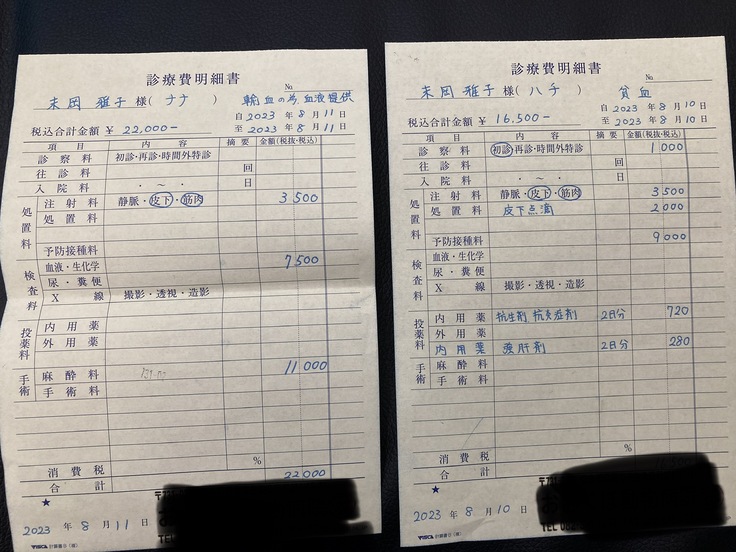 診療費明細書
No.
末岡 雅子 様( ナナ ) 輸血の為、血液提供
自 2023 年 8 月 11 日
税込合計金額 ¥ 22,000-
至 2023 年 8 月 11 日
項目 内容 摘要 金額(税抜・税込)
診察料 初診・再診・時間外特診
往診料 回
入院料 ・ 〜 ・ 日
処置料
注射料 静脈・皮下・筋肉 3 500
処置料
予防接種料
検査料
血液・生化学 7 500
尿・糞便
X線 撮影・透視・造影
投薬料
内用薬
外用薬
手術
麻酔料 11 000
手術料
消費税 %
合計 22 000
★
2023 年 8 月 11 日
診療費明細書
No.
末岡 雅子 様( ハチ ) 貧血
自 2023 年 8 月 10 日
税込合計金額 ¥ 16,500-
至 2023 年 8 月 10 日
項目 内容 摘要 金額(税抜・税込)
診察料 初診・再診・時間外特診 1 000
往診料 回
入院料 ・ 〜 ・ 日
処置料
注射料 静脈・皮下・筋肉 3 500
処置料 皮下点滴 2 000
予防接種料 9 000
検査料
血液・生化学
尿・糞便
X線 撮影・透視・造影
投薬料
内用薬 抗生剤 抗炎症剤 2日分 720
外用薬
内用薬 強肝剤 2日分 280
手術
麻酔料
手術料
消費税 %
合計
★
2023 年 8 月 10 日
TEL